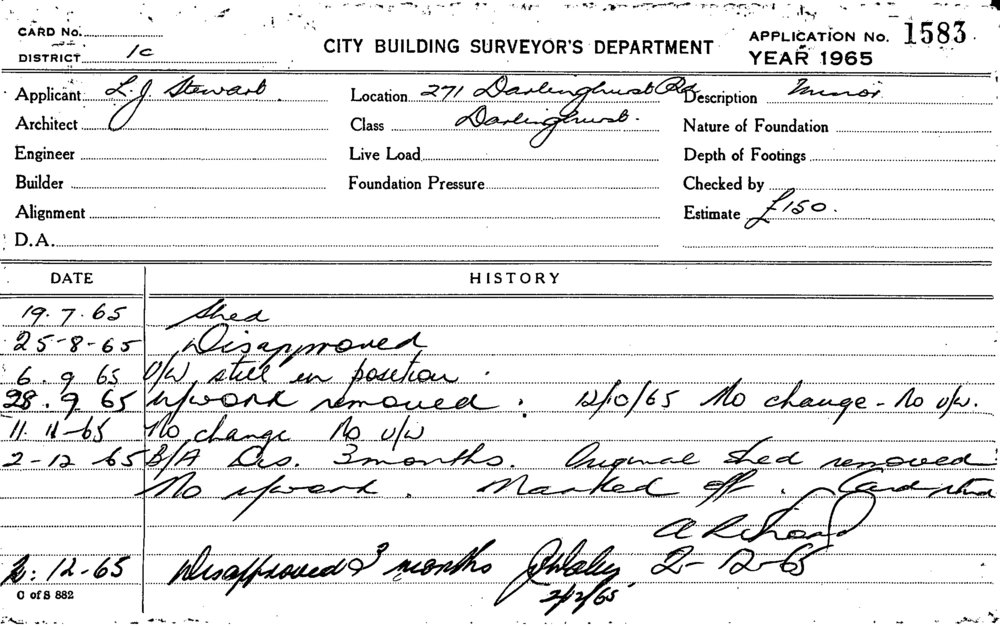 CARD No.
DISTRICT 1C
CITY BUILDING SURVEYOR'S DEPARTMENT
APPLICATION No. 1583
YEAR 1965
Applicant L.J. Stewart
Location 271 Darlinghurst Rd
Description Minor
Architect
Class Darlinghurst.
Nature of Foundation
Engineer
Live Load
Depth of Footings
Builder
Foundation Pressure
Checked by
Alignment
Estimate £150.
D.A.
DATE HISTORY
19.7.65 Shed
25-8-65 Disapproved
6.9 65 U/W still in position.
28.9 65 U/work removed. 12/10/65 No change - No U/W.
11.11-65 No change No U/W
2-12-65 B/A Dis. 3 months. Original shed removed
No U/work. Marked off. Card
2-12-65
2.12-65 Disapproved 3 months
2/12/65
C of S 882